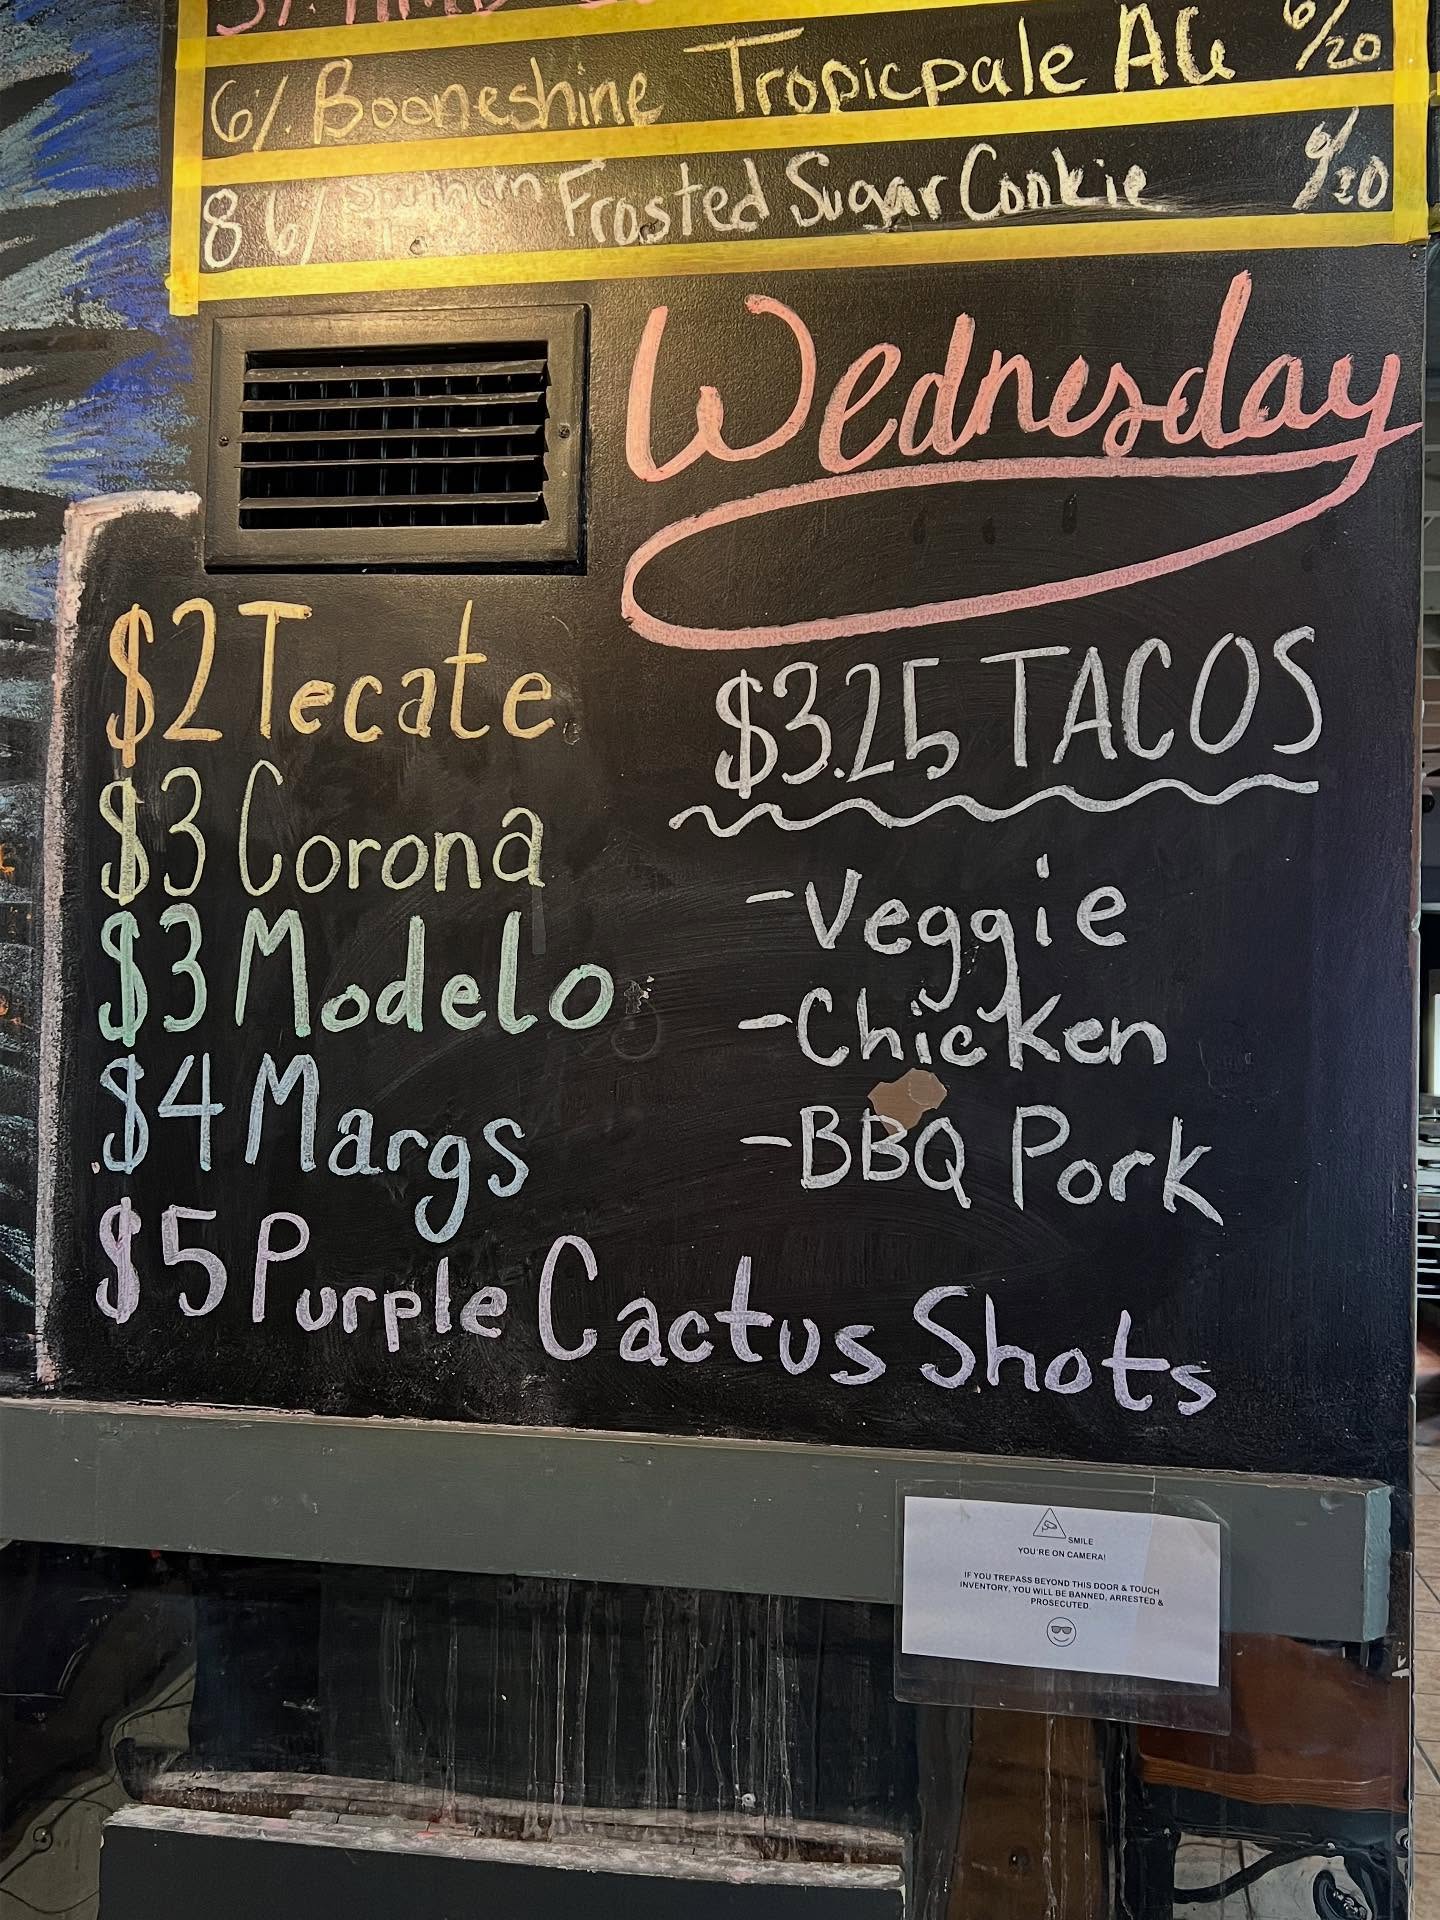 6% Booneshine Tropicpale Ale 6/20
8 6% Southern Frosted Sugar Cookie 6/20
Wednesday
$2 Tecate
$3 Corona
$3 Modelo
$4 Margs
$5 Purple Cactus Shots
$3.25 TACOS
-Veggie
-Chicken
-BBQ Pork
SMILE
YOU'RE ON CAMERA!
IF YOU TREPASS BEYOND THIS DOOR & TOUCH
INVENTORY, YOU WILL BE BANNED, ARRESTED &
PROSECUTED.